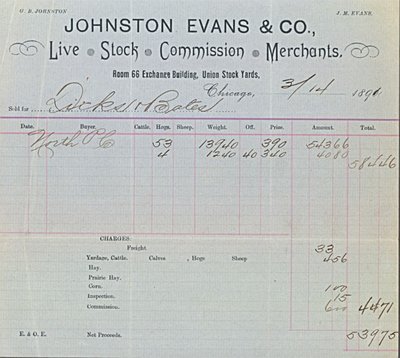 G. B. JOHNSTON J. M. EVANS.
JOHNSTON EVANS & CO.,
Live Stock Commission Merchants.
Room 66 Exchange Building, Union Stock Yards,
Chicago, 3/14 1891
Sold for Dicks & Bates
Date. Buyer. Cattle. Hogs. Sheep. Weight. Off. Price. Amount. Total.
North P C 53 13940 390 54366
4 1240 40 340 4080
58446
CHARGES:
Freight 33
Yardage, Cattle. Calves , Hogs Sheep 456
Hay.
Prairie Hay.
Corn. 100
Inspection. 15
Commission. 600 4471
E. & O. E. Net Proceeds. 53975